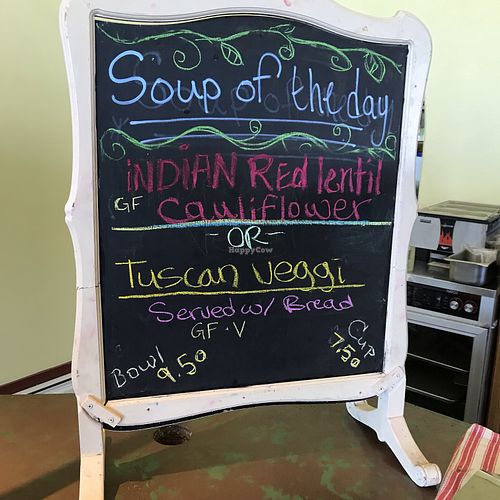 Soup of the day
iNDIAN Red lentil
GF
Cauliflower
-OR-
HappyCow
Tuscan Veggi
Served w/ Bread
GF · V
Bowl
9.50
Cup
7.50